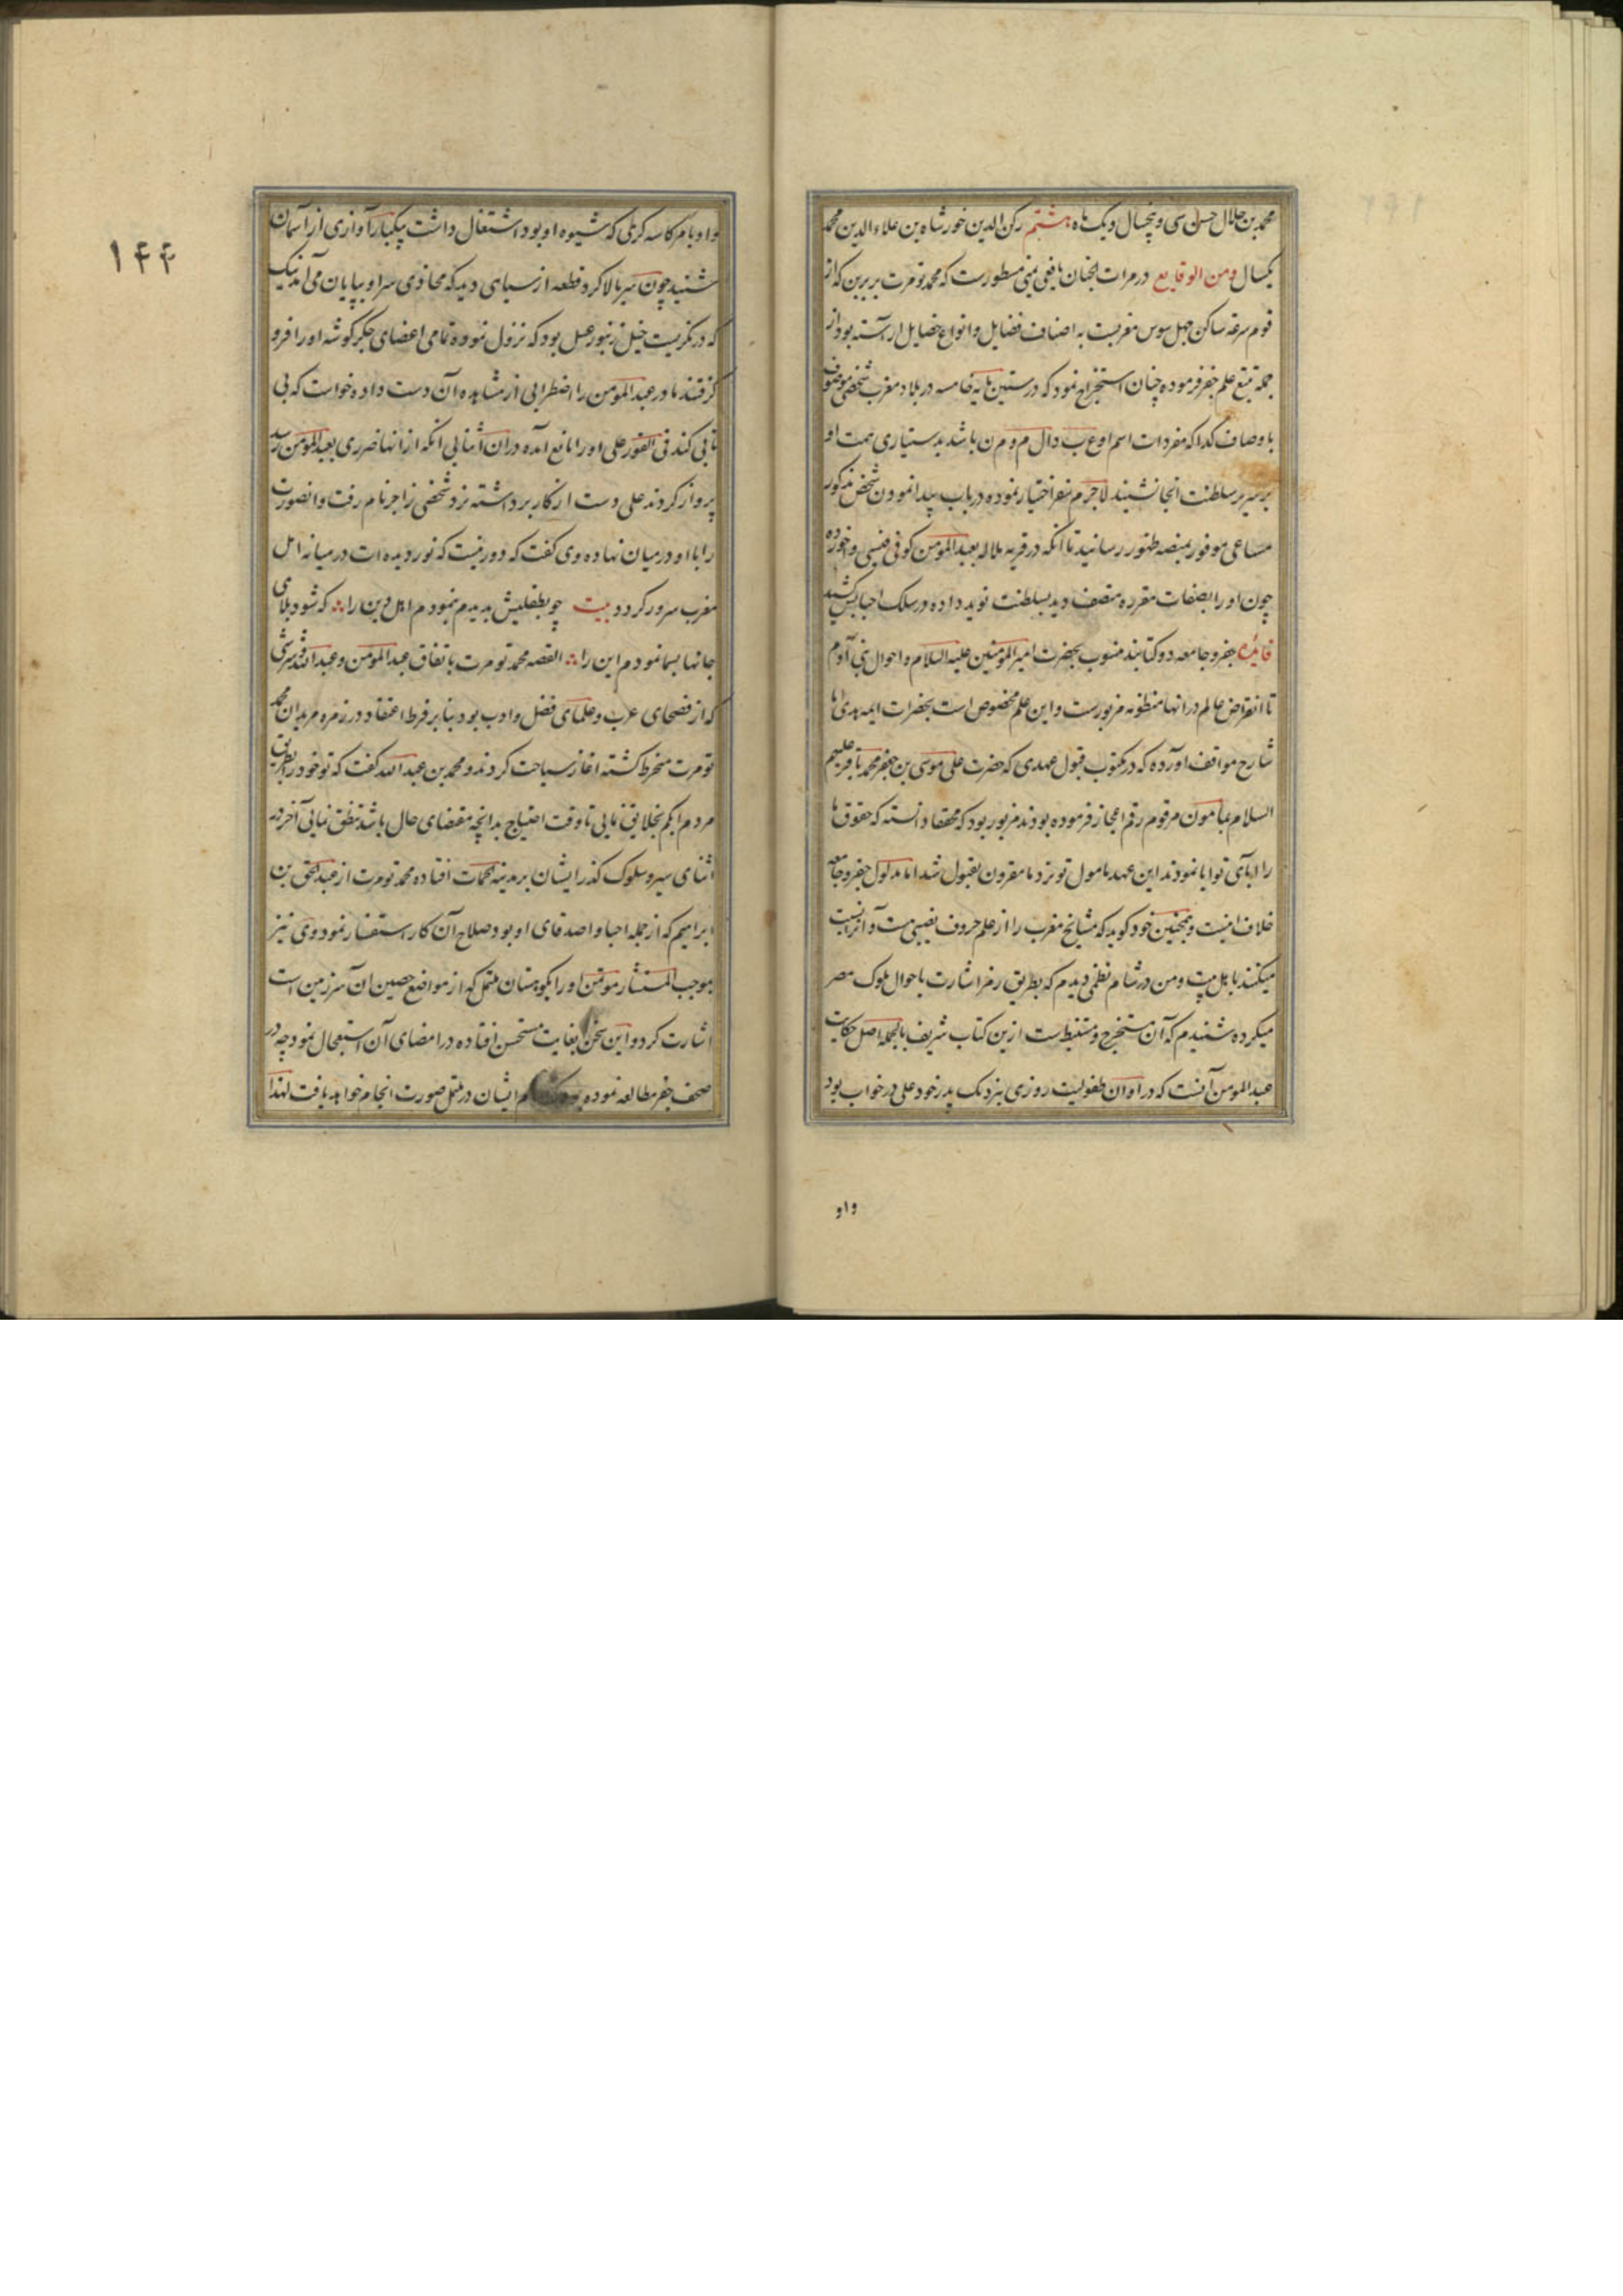 محمد بن جلال حسن سی و پنجسال و یک ماه هشتم رکن الدین خورشاه بن علاء الدین محمد
یکسال ومن الوقایع در مرات الجنان یافعی یمنی مسطورست که محمد تومرت بربرین که از
قوم سرغه ساکن جبل سوس مغربست به اصناف فضایل و انواع خصایل اراسته بود از
جمله تتبع علم جفر فرموده چنان استخراج نمود که در ستین مایه خامسه در بلاد مغرب شخصی موصوف
باوصاف کذا که مفردات اسم او ع ب دال م و م ن باشد بدستیاری همت او
بر سریر سلطنت انجا نشیند لاجرم سفر اختیار نموده در باب پیدا نمودن شخص مذکور
مساعی موفور بمنصه ظهور رسانید تا انکه در قریه ملاله بعبد المومن کوفی قیسی واخورده
چون او را بصفات مقرره متصف دید بسلطنت نوید داده در سلک احبایش کشید
فایده جفر و جامعه دو کتابند منسوب بحضرت امیر المومنین علیه السلام و احوال بنی آدم
تا انقراض عالم در انها منظونه مزبورست و این علم مخصوص است بحضرات ایمه هدی اما
شارح مواقف آورده که در مکتوب قبول عهدی که حضرت علی موسی بن جعفر محمد باقر علیهم
السلام بمامون مرقوم رقم اعجاز فرموده بودند مزبور بود که محققا دانسته که حقوق ما
را ابای تو ابا نمودند این عهد مامول تو نزد ما مقرون بقبول شد اما مدلول جفر و جامعه
خلاف اینست و همچنین خود کوید که مشایخ مغرب را از علم حروف نصیبی هست و آنرا نسبت
میکنند باهل بیت و من در شام نظمی دیدم که بطریق رمز اشارت باحوال ملوک مصر
میکرده شنیدم که آن مستخرج و مستنبط است ازین کتاب شریف بالجمله اصل حکایت
عبد المومن آنست که در اوان طفولیت روزی نزدیک پدر خود علی در خواب بود
واو
۱۴۴
واو بامر کاسه کری که شیوه او بود اشتغال داشت بیکبار آوازی از آسمان
شنید چون سر بالا کرد قطعه از سیاهی دید که محاذی سر او بپایان می‌آمد نیک
که در نکریست خیل زنبور عسل بود که نزول نموده تمامی اعضای جکر کوشه او را فرو
کرفتند مادر عبد المومن را اضطرابی از مشاهده آن دست داده خواست که بی
تابی کند فی الفور علی او را مانع آمده در ان اثنا بی انکه از انها ضرری بعبد المومن رسد
پرواز کردند علی دست از کار برداشته نزد شخصی زاجر نام رفت و انصورت
را با او در میان نهاده وی کفت که دور نیست که نور دیده ات در میانه اهل
مغرب سرور کردد بیت چو بطفلیش بدیدم بنمودم اهل دین را که شود بلای
جانها بسما نمودم این را القصه محمد تومرت باتفاق عبد المومن و عبد الله شرشی
که از فصحای عرب و علمای فضل و ادب بود بنابر فرط اعتقاد در زمره مریدان محمد
تومرت منخرط کشته اغاز سیاحت کردند و محمد بن عبد الله کفت که تو خود را بطریق
مردم ابکم بخلایق نمایی تا وقت احتیاج بدانچه مقتضای حال باشد نطق نمایی آخر در
اثنای سیر و سلوک کذر ایشان بمدینه اغمات افتاده محمد تومرت از عبد الحق بن
ابراهیم که از جمله احبا و اصدقای او بود صلاح آن کار استفسار نمود وی نیز
بموجب المستشار موتمن او را بکوهستان تنمل که از مواضع حصین ان سرزمین است
اشارت کرد و این سخن بغایت مستحسن افتاده در امضای آن استعجال نمود چه در
صحف جفر مطالعه نموده بود که مهم ایشان در تنمل صورت انجام خواهد یافت لهذا